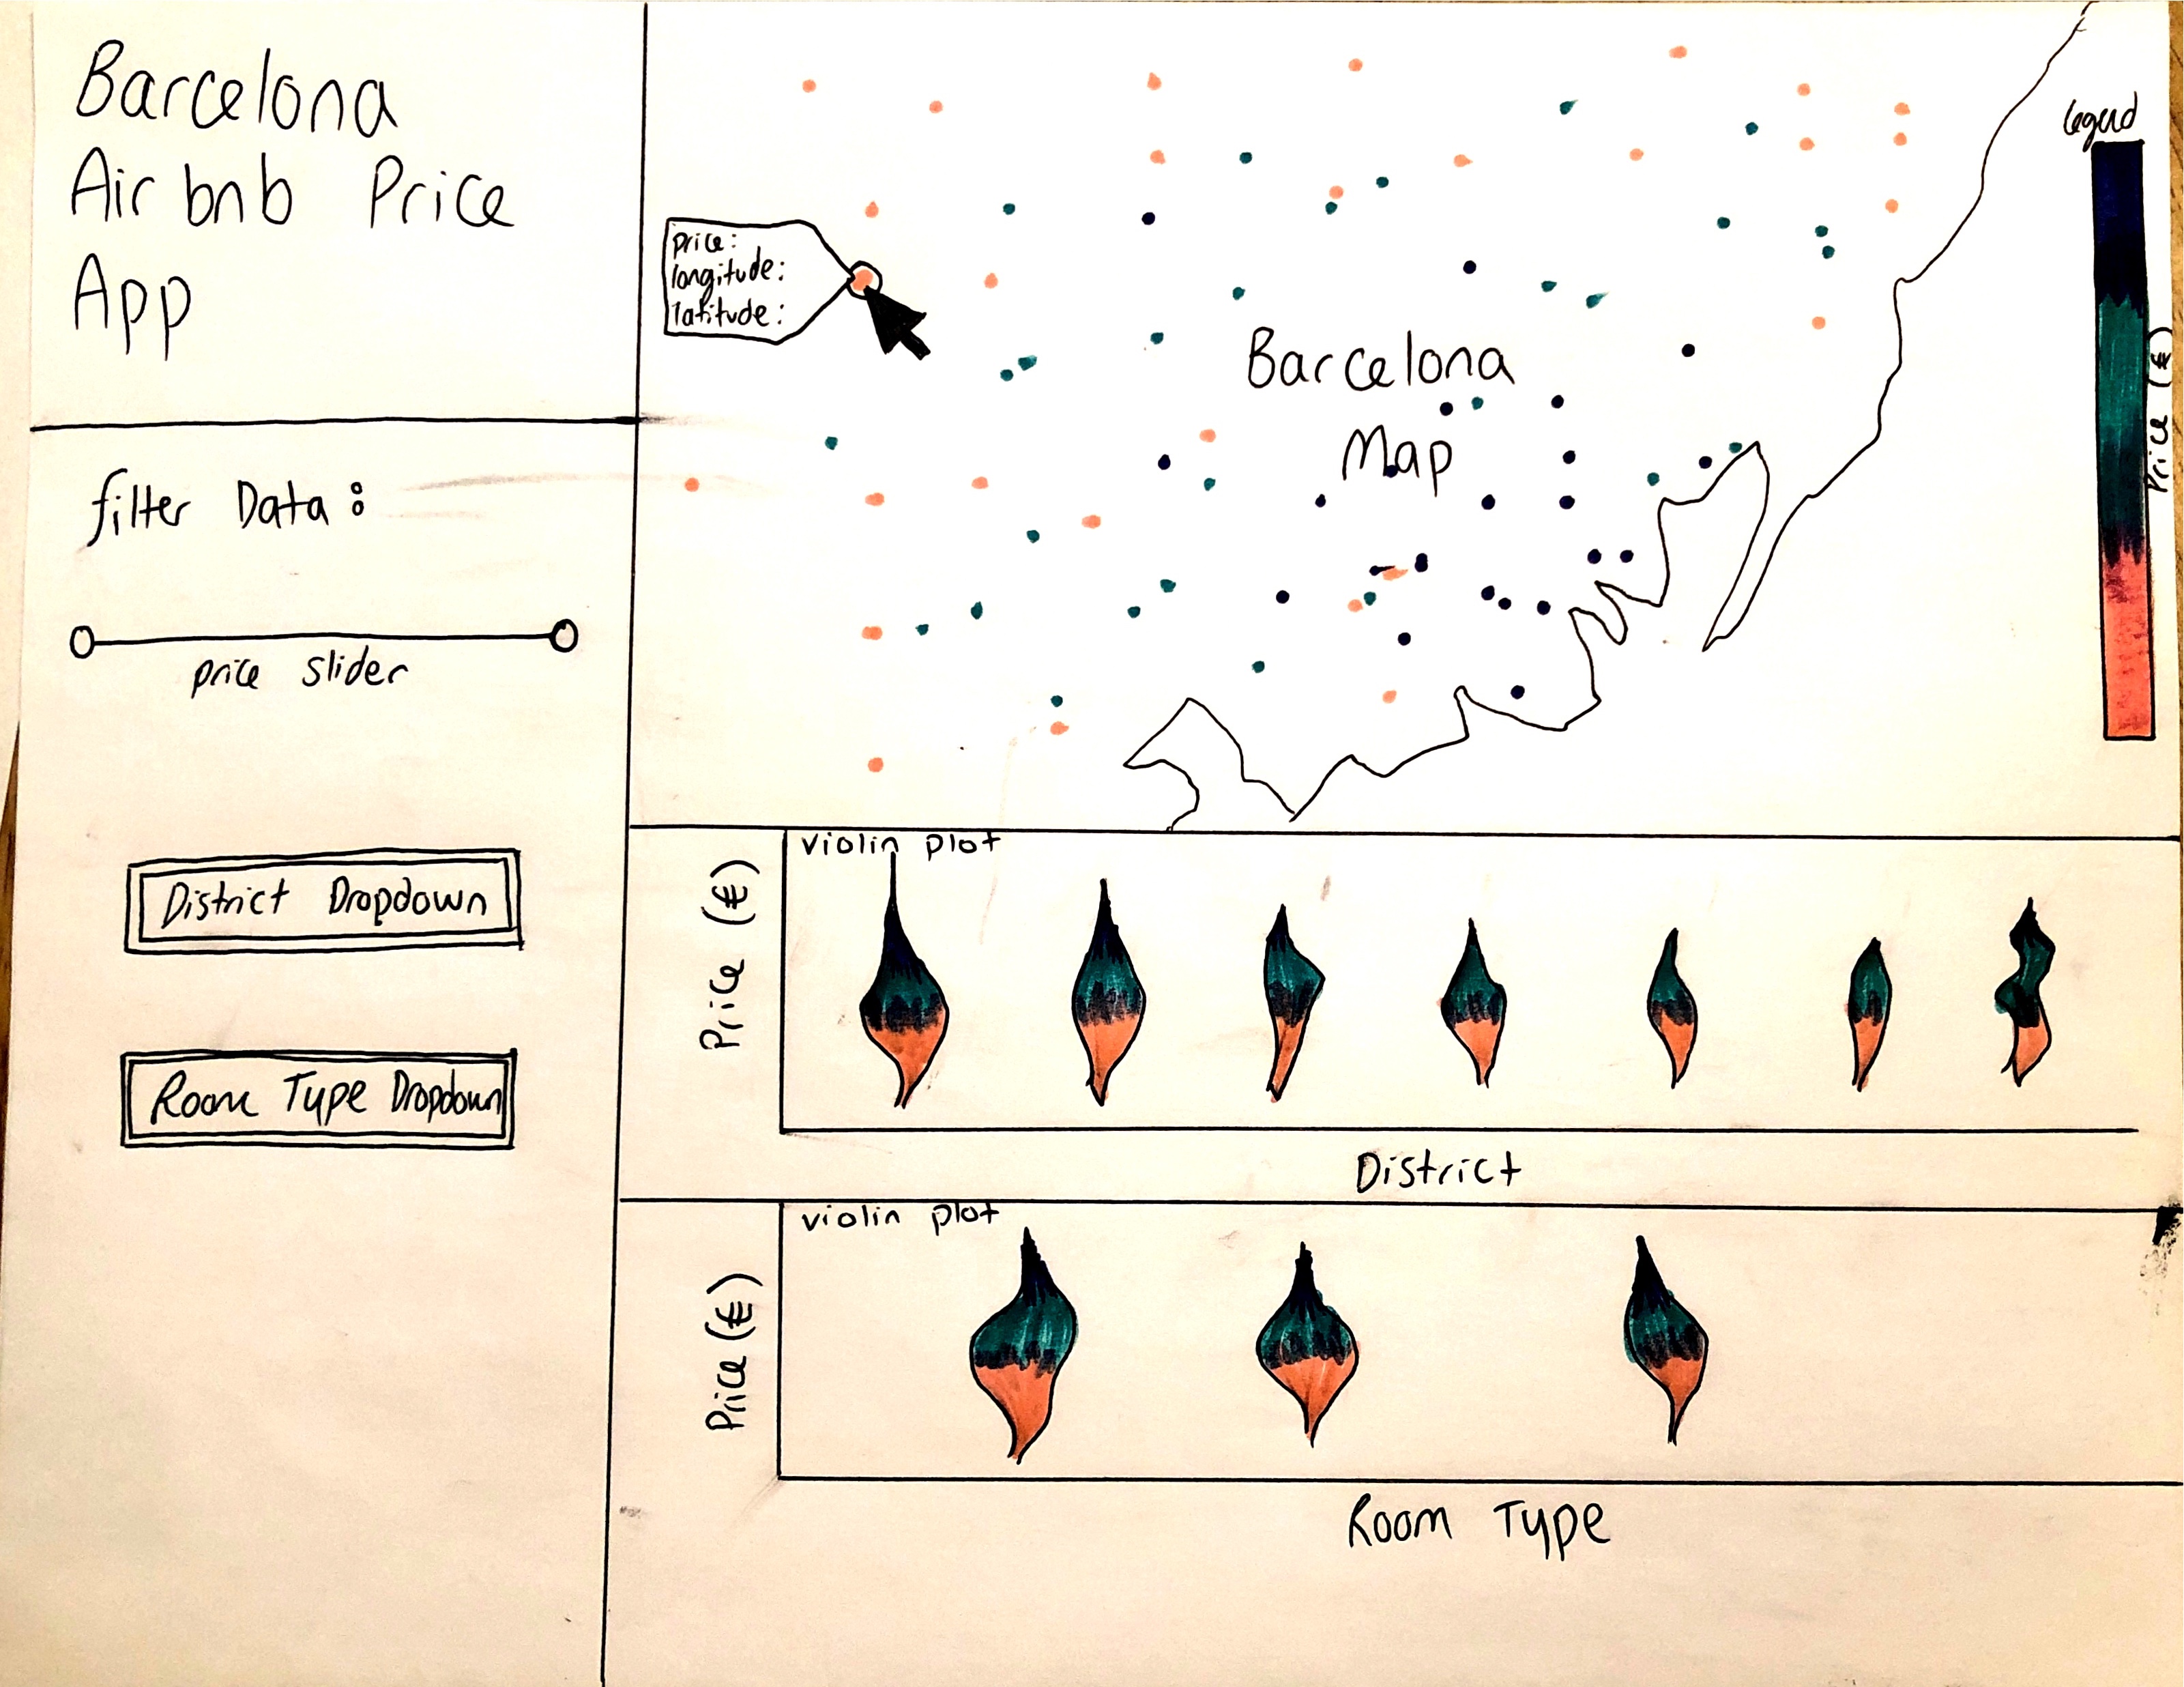 Barcelona
Airbnb Price
App
filter Data:
price slider
District Dropdown
Room Type Dropdown
price:
longitude:
latitude:
Barcelona
Map
legend
Price (€)
violin plot
Price (€)
District
violin plot
Price (€)
Room Type